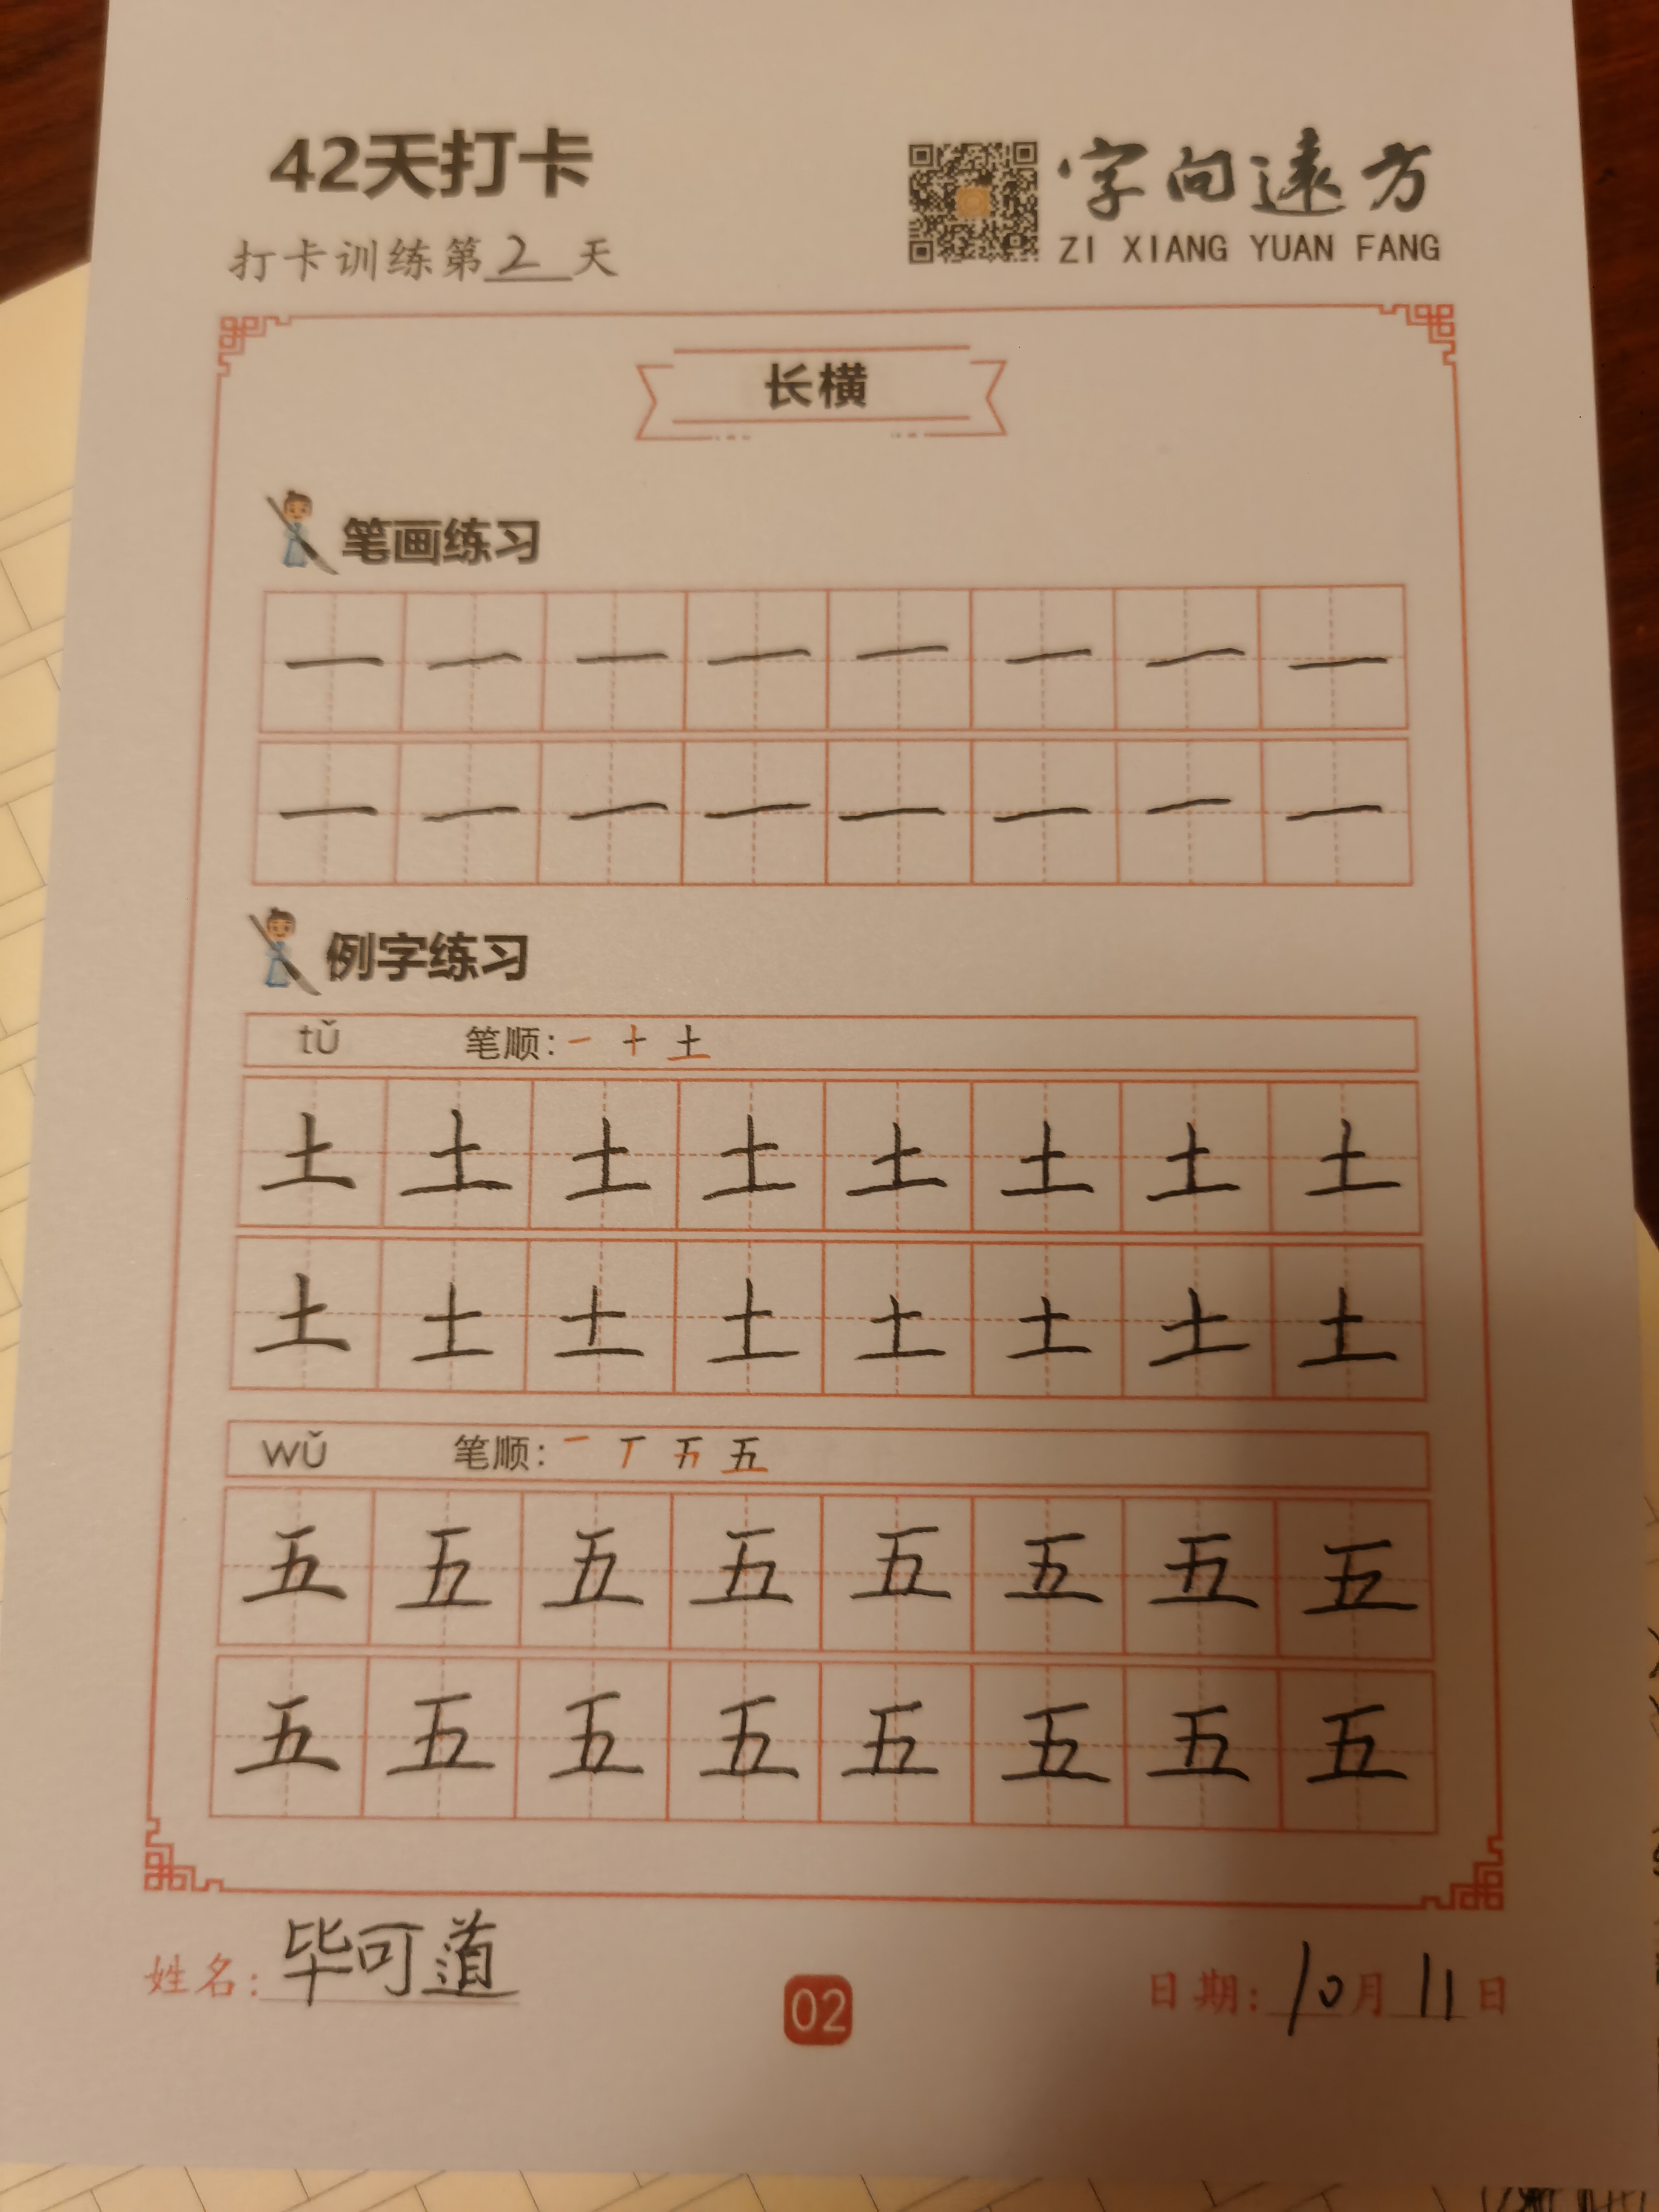 42天打卡
字向遠方
打卡训练第2天
ZI XIANG YUAN FANG
长横
笔画练习
一 一 一 一 一 一 一 一
一 一 一 一 一 一 一 一
例字练习
tǔ 笔顺: 一 十 土
土 土 土 土 土 土 土 土
土 土 土 土 土 土 土 土
wǔ 笔顺: 一 丅 五
五 五 五 五 五 五 五 五
五 五 五 五 五 五 五 五
姓名: 毕可道
02
日期: 10月11日